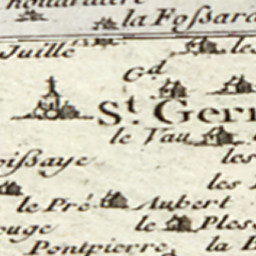 la Fossard
Juillé
les
Gd
St. Germ
le Vau
oissaye
les
les
le Pré Aubert
ouge
le Ples
Pontpierre
la B